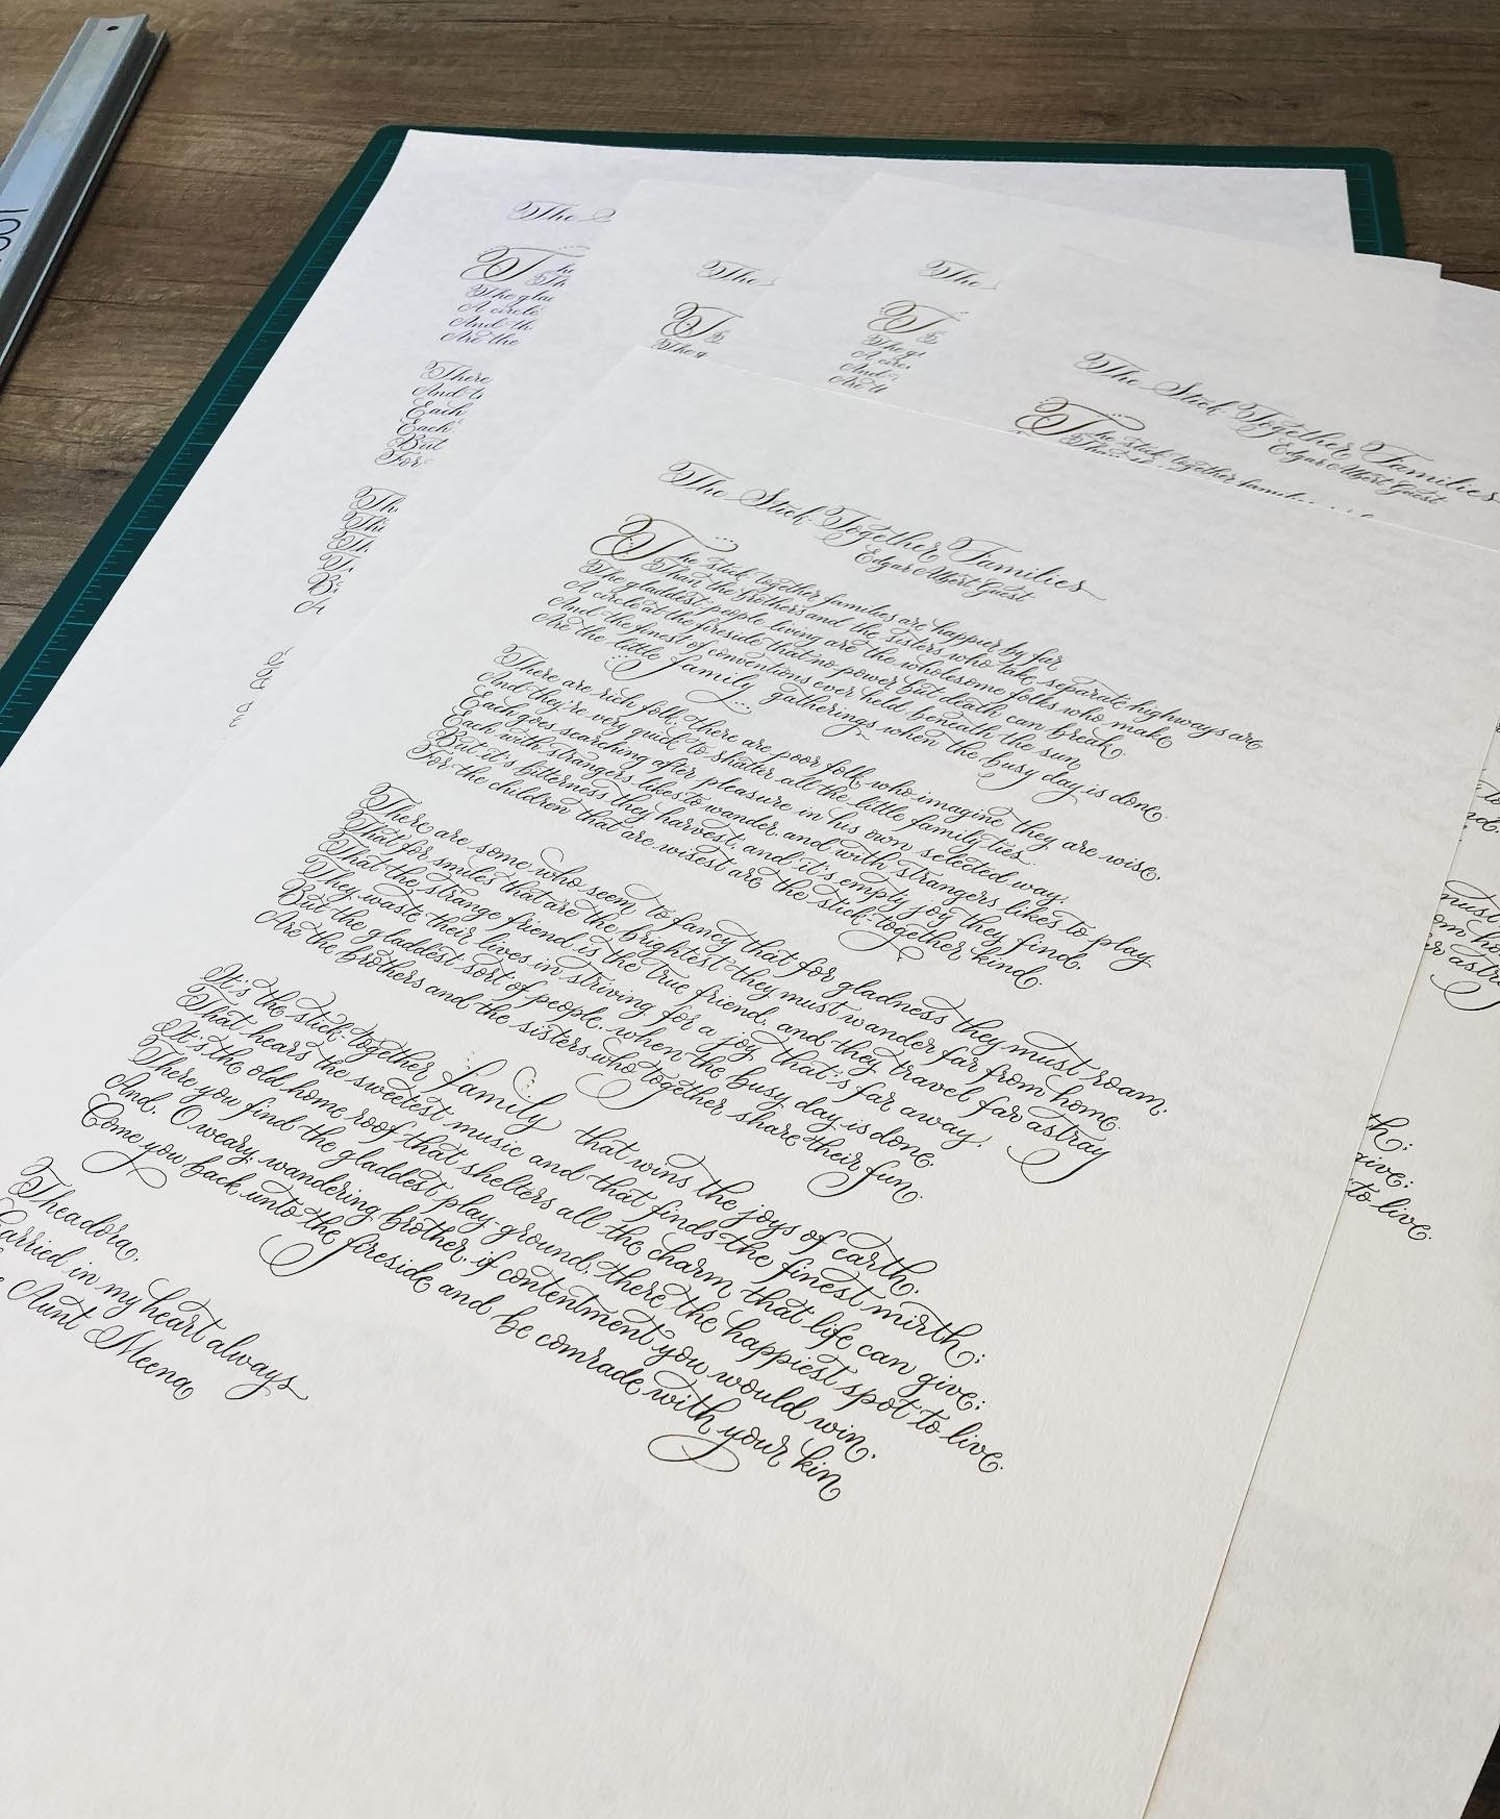 The
The
The gla
A circle
And th
Are the
There
And t
Each
Each
But
For
The
The
The
The g
The
The
The g
A circ
And
Are th
The Stick Together Families
Edgar Albert Guest
The stick together famil
The Stick Together Families
Edgar Albert Guest
The stick together families are happier by far
Than the brothers and the sisters who take separate highways are
The gladdest people living are the wholesome folks who make
A circle at the fireside that no power but death can break
And the finest of conventions ever held beneath the sun
Are the little family gatherings when the busy day is done.
There are rich folk, there are poor folk, who imagine they are wise,
And they're very quick to shatter all the little family ties.
Each goes searching after pleasure in his own selected way,
Each with strangers likes to wander, and with strangers likes to play.
But it's bitterness they harvest, and it's empty joy they find,
For the children that are wisest are the stick-together kind.
There are some who seem to fancy that for gladness they must roam,
That for smiles that are the brightest they must wander far from home.
That the strange friend is the true friend, and they travel far astray
They waste their lives in striving for a joy that's far away,
But the gladdest sort of people, when the busy day is done,
Are the brothers and the sisters who together share their fun.
It's the stick-together family that wins the joys of earth,
That hears the sweetest music and that finds the finest mirth;
It's the old home roof that shelters all the charm that life can give;
There you find the gladdest play-ground, there the happiest spot to live.
And, O weary, wandering brother, if contentment you would win,
Come you back unto the fireside and be comrade with your kin
Theadora,
Carried in my heart always
Aunt Meena
must
om ho
r astr
th;
give;
to live.